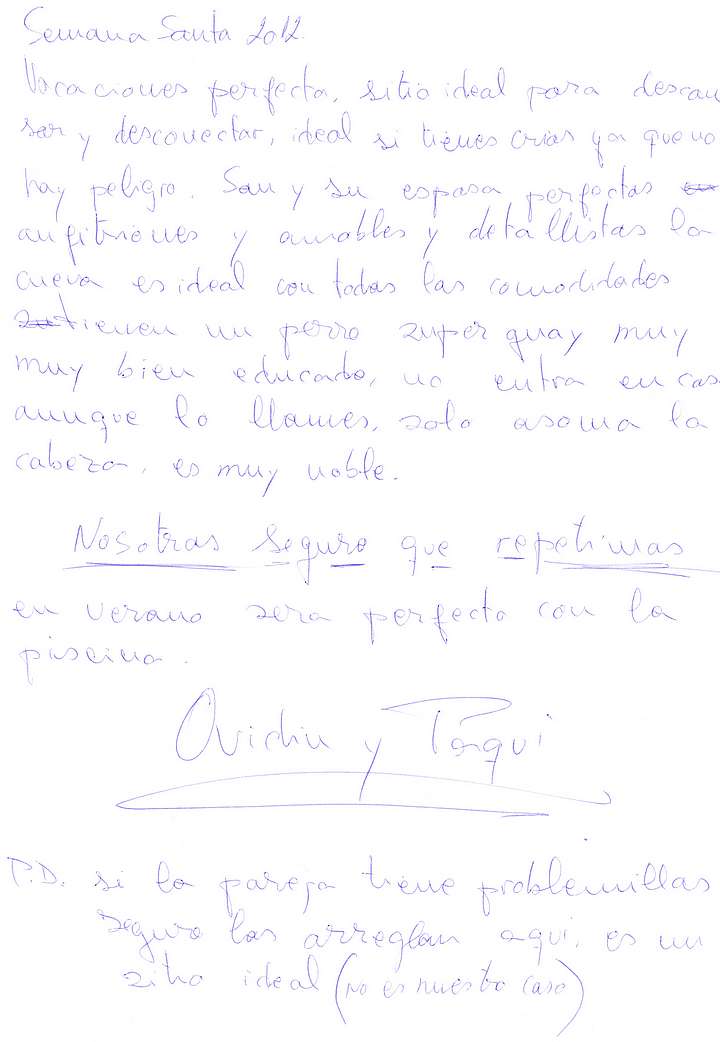 Semana Santa 2012.
Vacaciones perfecta, sitio ideal para descan
sar y desconectar, ideal si tienes crias ya que no
hay peligro. San y su esposa perfectas
anfitriones y amables y detallistas la
cueva es ideal con todas las comodidades
tienen un perro super guay muy
muy bien educado, no entra en cas
aunque lo llames, solo asoma la
cabeza, es muy noble.
Nosotras seguro que repetimas
en verano sera perfecto con la
piscina.
y Paqui
P.D. si la pareja tiene problemillas
seguro las arreglan aqui, es un
sitio ideal (no es nuestro caso)